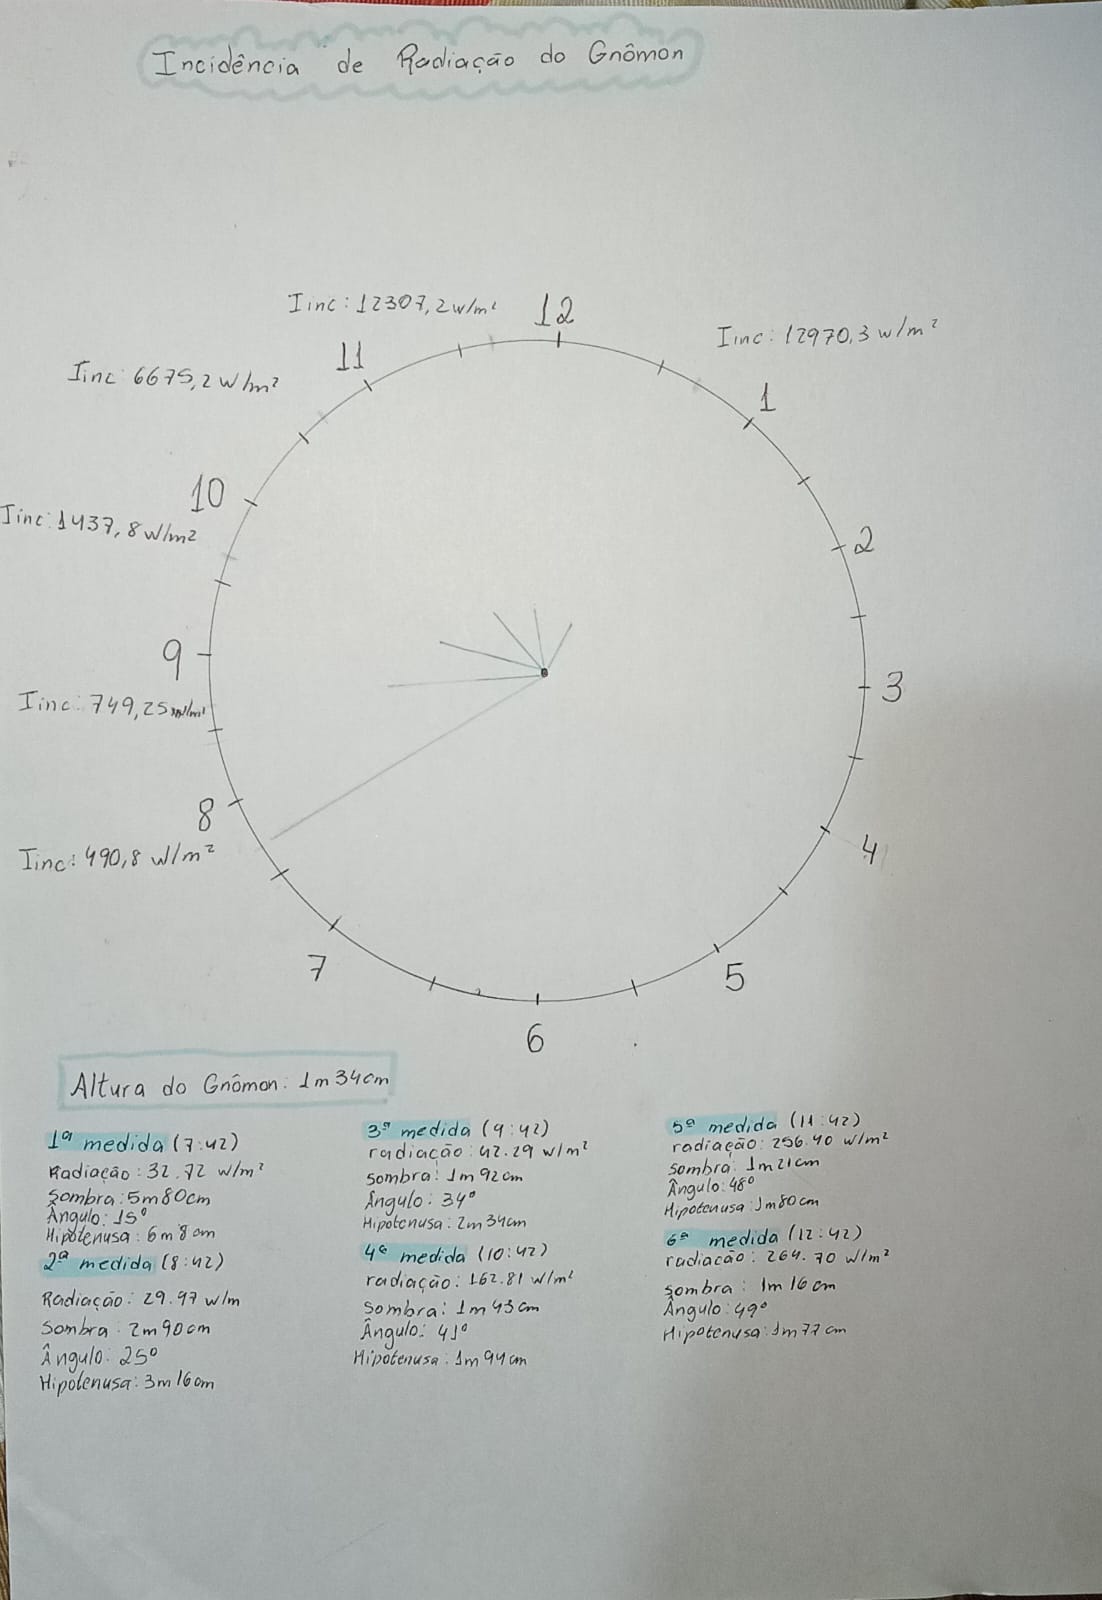 Incidência de Radiação do Gnômon
Iinc: 12307,2 w/m²
12
Iinc: 12970,3 w/m²
11
Iinc 6675,2 W/m²
1
10
Iinc: 1437,8 W/m2
2
9
3
Iinc: 749,25 w/m²
8
4
Iinc: 490,8 W/m²
7
5
6
Altura do Gnômon: 1m34cm
1ª medida (7:42)
Radiação: 32.72 W/m²
Sombra: 5m80cm
Ângulo: 15°
Hipotenusa: 6m 8cm
2ª medida (8:42)
Radiação: 29.97 w/m
Sombra: 2m90cm
Ângulo: 25°
Hipotenusa: 3m16cm
3ª medida (9:42)
radiação: 42.29 w/m²
sombra: 1m 92cm
Ângulo: 34°
Hipotenusa: 2m34cm
4ª medida (10:42)
radiação: 162.81 w/m²
Sombra: 1m43cm
Ângulo: 41°
Hipotenusa: 1m94cm
5ª medida (11:42)
radiação: 256.40 w/m²
Sombra: 1m21cm
Ângulo: 48°
Hipotenusa: 1m80cm
6ª medida (12:42)
radiação: 264.70 W/m²
sombra: 1m16cm
Ângulo: 49°
Hipotenusa: 1m77cm